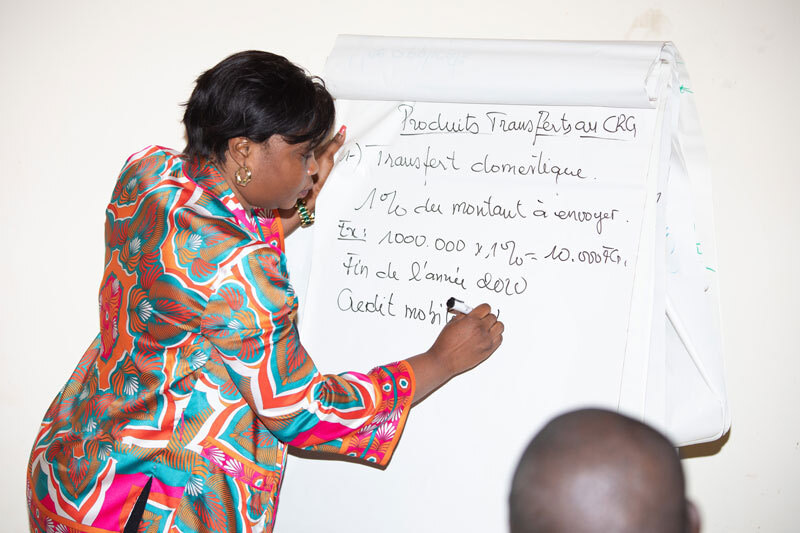 Produits Transferts au CRG
1-) Transfert domestique.
1% du montant à envoyer.
Ex: 1000.000 x 1% = 10.000 FG.
Fin de l'année 2020
Credit mobi